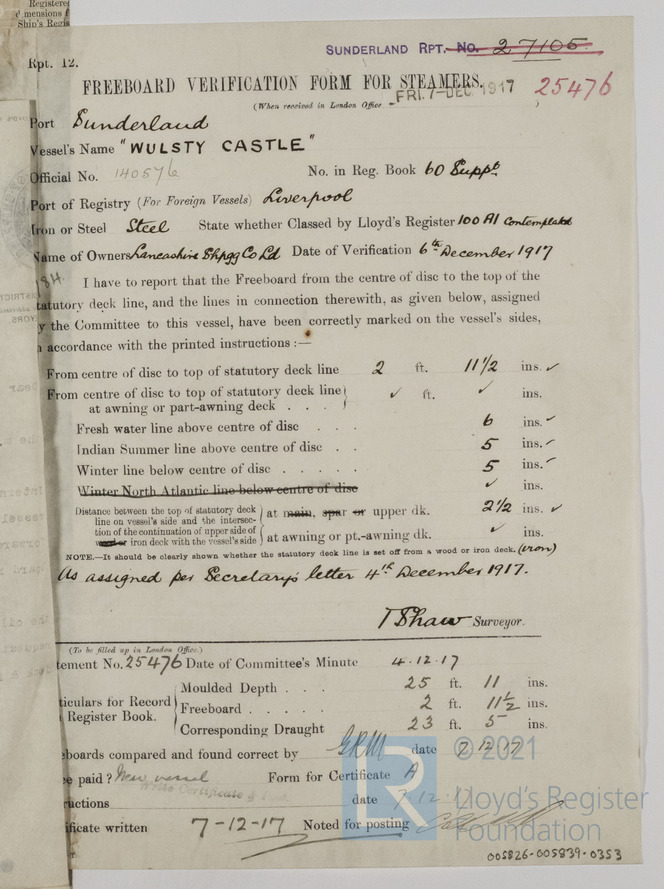 Registere
d mensions
Ship's Regis
SUNDERLAND RPT. No. 27105
Rpt. 12.
FREEBOARD VERIFICATION FORM FOR STEAMERS.
FRI. 7-DEC. 1917
25476
(When received in London Office
Port Sunderland
Vessel's Name "WULSTY CASTLE"
Official No. 140576 No. in Reg. Book 60 Suppt
Port of Registry (For Foreign Vessels) Liverpool
Iron or Steel Steel State whether Classed by Lloyd's Register 100 A1 Contemplated
Name of Owners Lancashire Shpgg Co Ld Date of Verification 6th December 1917
184.
I have to report that the Freeboard from the centre of disc to the top of the
tatutory deck line, and the lines in connection therewith, as given below, assigned
y the Committee to this vessel, have been correctly marked on the vessel's sides,
n accordance with the printed instructions :—
From centre of disc to top of statutory deck line 2 ft. 11 1/2 ins. ✓
From centre of disc to top of statutory deck line ✓ ft. ✓ ins.
at awning or part-awning deck . . .
Fresh water line above centre of disc . . . 6 ins. ✓
Indian Summer line above centre of disc . . 5 ins. ✓
Winter line below centre of disc . . . . . 5 ins. ✓
Winter North Atlantic line below centre of disc ✓ ins.
Distance between the top of statutory deck
line on vessel's side and the intersec-
tion of the continuation of upper side of
wood or iron deck with the vessel's side
at main, spar or upper dk. 2 1/2 ins. ✓
at awning or pt.-awning dk. ✓ ins.
NOTE.—It should be clearly shown whether the statutory deck line is set off from a wood or iron deck. (iron)
As assigned per Secretary's letter 4th December 1917.
T Shaw Surveyor.
(To be filled up in London Office.)
tement No. 25476 Date of Committee's Minute 4.12.17
ticulars for Record
Register Book.
Moulded Depth . . . 25 ft. 11 ins.
Freeboard . . . . . 2 ft. 11 1/2 ins.
Corresponding Draught 23 ft. 5 ins.
eboards compared and found correct by GRM date 7.12.17
ee paid ? New vessel Form for Certificate A
Write Certificate &
ructions date 7-12-17
ificate written 7-12-17 Noted for posting
© 2021
LR
Lloyd's Register
Foundation
005826-005839-0353